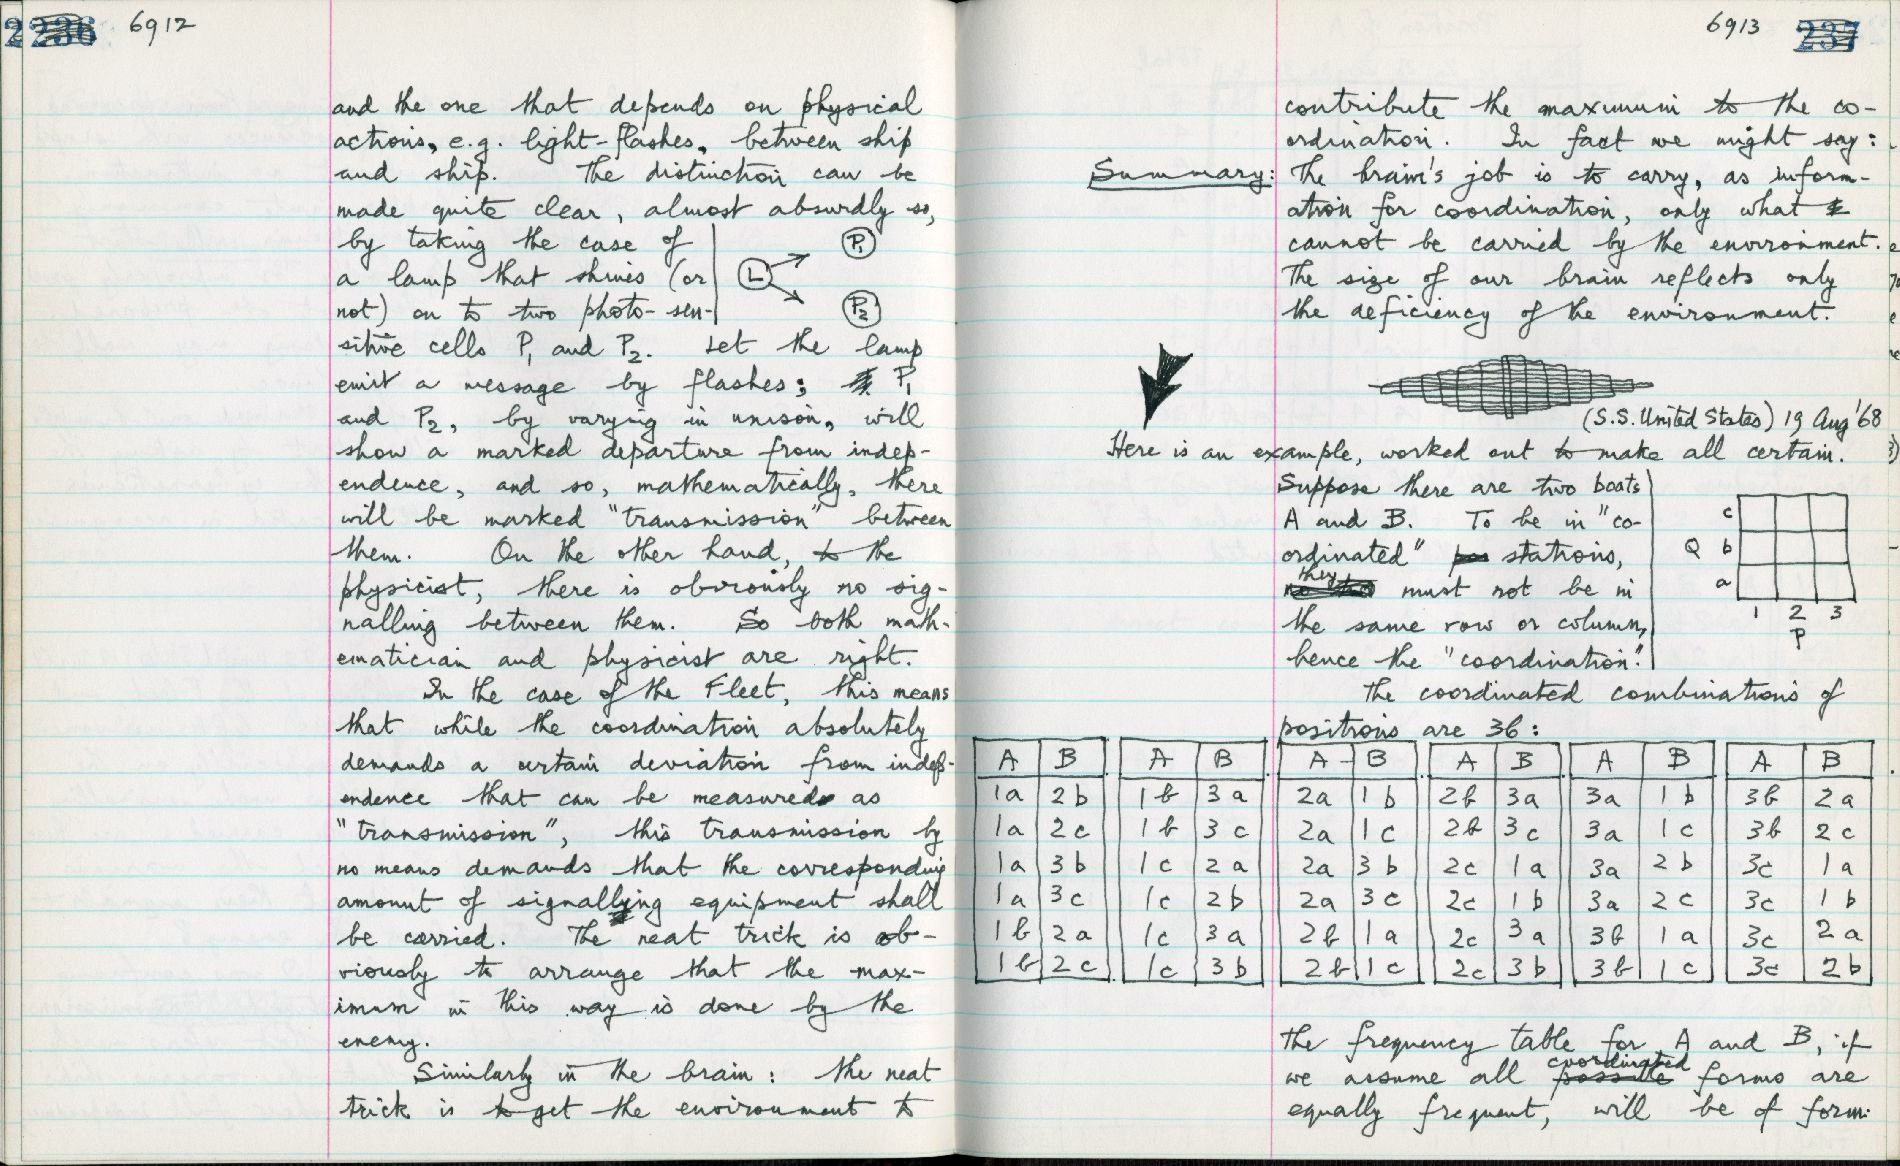 2236 6912
and the one that depends on physical
actions, e.g. light-flashes, between ship
and ship. The distinction can be
made quite clear, almost absurdly so,
by taking the case of
a lamp that shines (or
not) on to two photo-sen-
L P1 P2
sitive cells P1 and P2. Let the lamp
emit a message by flashes; P1
and P2, by varying in unison, will
show a marked departure from indep-
endence, and so, mathematically, there
will be marked "transmission" between
them. On the other hand, to the
physicist, there is obviously no sig-
nalling between them. So both math-
ematician and physicist are right.
In the case of the Fleet, this means
that while the coordination absolutely
demands a certain deviation from indep-
endence that can be measured as
"transmission", this transmission by
no means demands that the corresponding
amount of signalling equipment shall
be carried. The neat trick is ob-
viously to arrange that the max-
imum in this way is done by the
enemy.
Similarly in the brain: the neat
trick is to get the environment to
6913 237
contribute the maximum to the co-
ordination. In fact we might say:
Summary: The brain's job is to carry, as inform-
ation for coordination, only what
cannot be carried by the environment.
The size of our brain reflects only
the deficiency of the environment.
(S.S. United States) 19 Aug '68
Here is an example, worked out to make all certain.
Suppose there are two boats
A and B. To be in "co-
ordinated" stations,
they must not be in
the same row or column,
hence the "coordination".
c
Q b
a
1 2 3
P
The coordinated combinations of
positions are 36:
A B A B A B A B A B A B
1a 2b 1b 3a 2a 1b 2b 3a 3a 1b 3b 2a
1a 2c 1b 3c 2a 1c 2b 3c 3a 1c 3b 2c
1a 3b 1c 2a 2a 3b 2c 1a 3a 2b 3c 1a
1a 3c 1c 2b 2a 3c 2c 1b 3a 2c 3c 1b
1b 2a 1c 3a 2b 1a 2c 3a 3b 1a 3c 2a
1b 2c 1c 3b 2b 1c 2c 3b 3b 1c 3c 2b
The frequency table for A and B, if
we assume all possible coordinated forms are
equally frequent, will be of form: